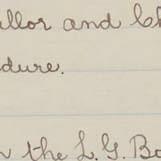 llor and Ch
dure.
n the L. G. Bo